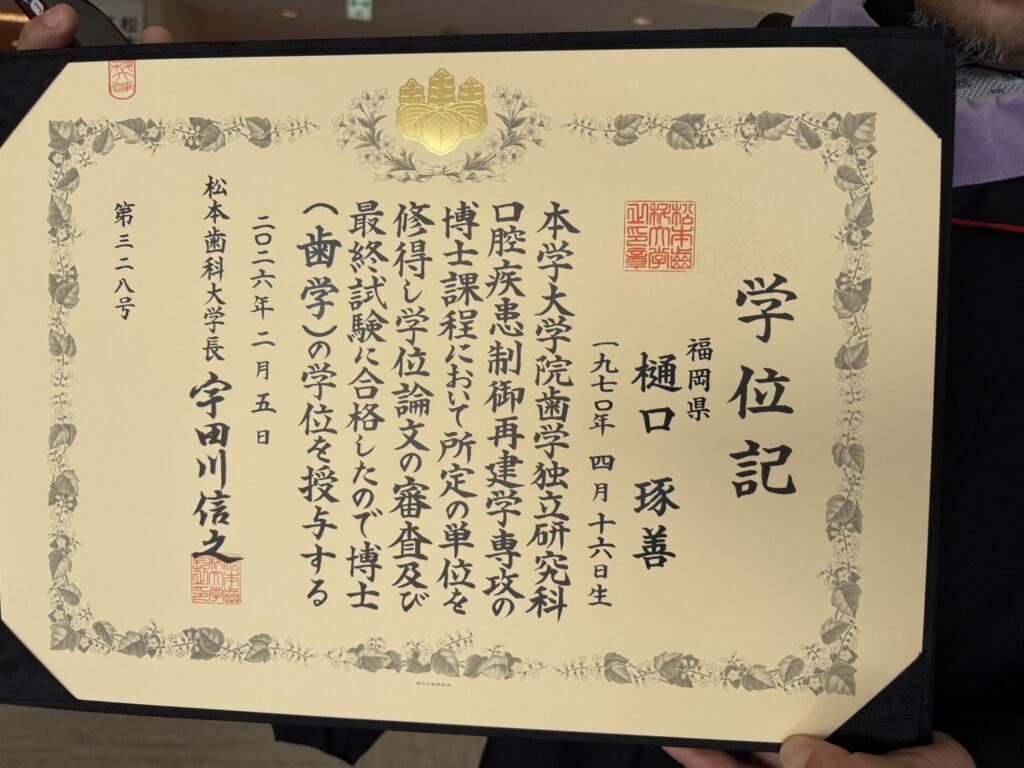 学位記
福岡県
樋口 琢善
一九七〇年 四月十六日生
本学大学院歯学独立研究科
口腔疾患制御再建学専攻の
博士課程において所定の単位を
修得し学位論文の審査及び
最終試験に合格したので博士
（歯学）の学位を授与する
二〇二六年二月五日
松本歯科大学長 宇田川信之
第三二八号